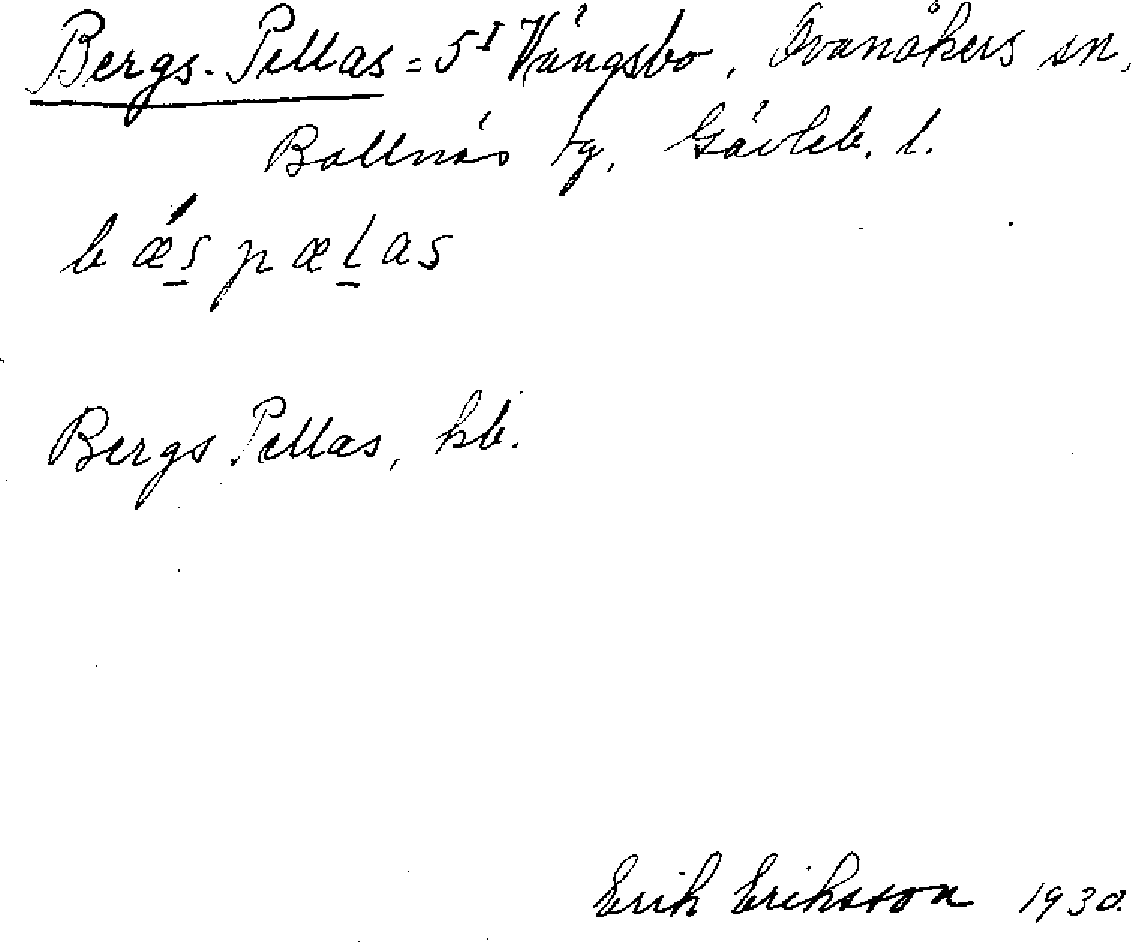 Bergs-Pellas = 5¹ Vängsbo, Ovanåkers sn,
Bollnäs tg, Gävleb. l.
bǽs pælas
Bergs Pellas, hb.
Erik Eriksson 1930.